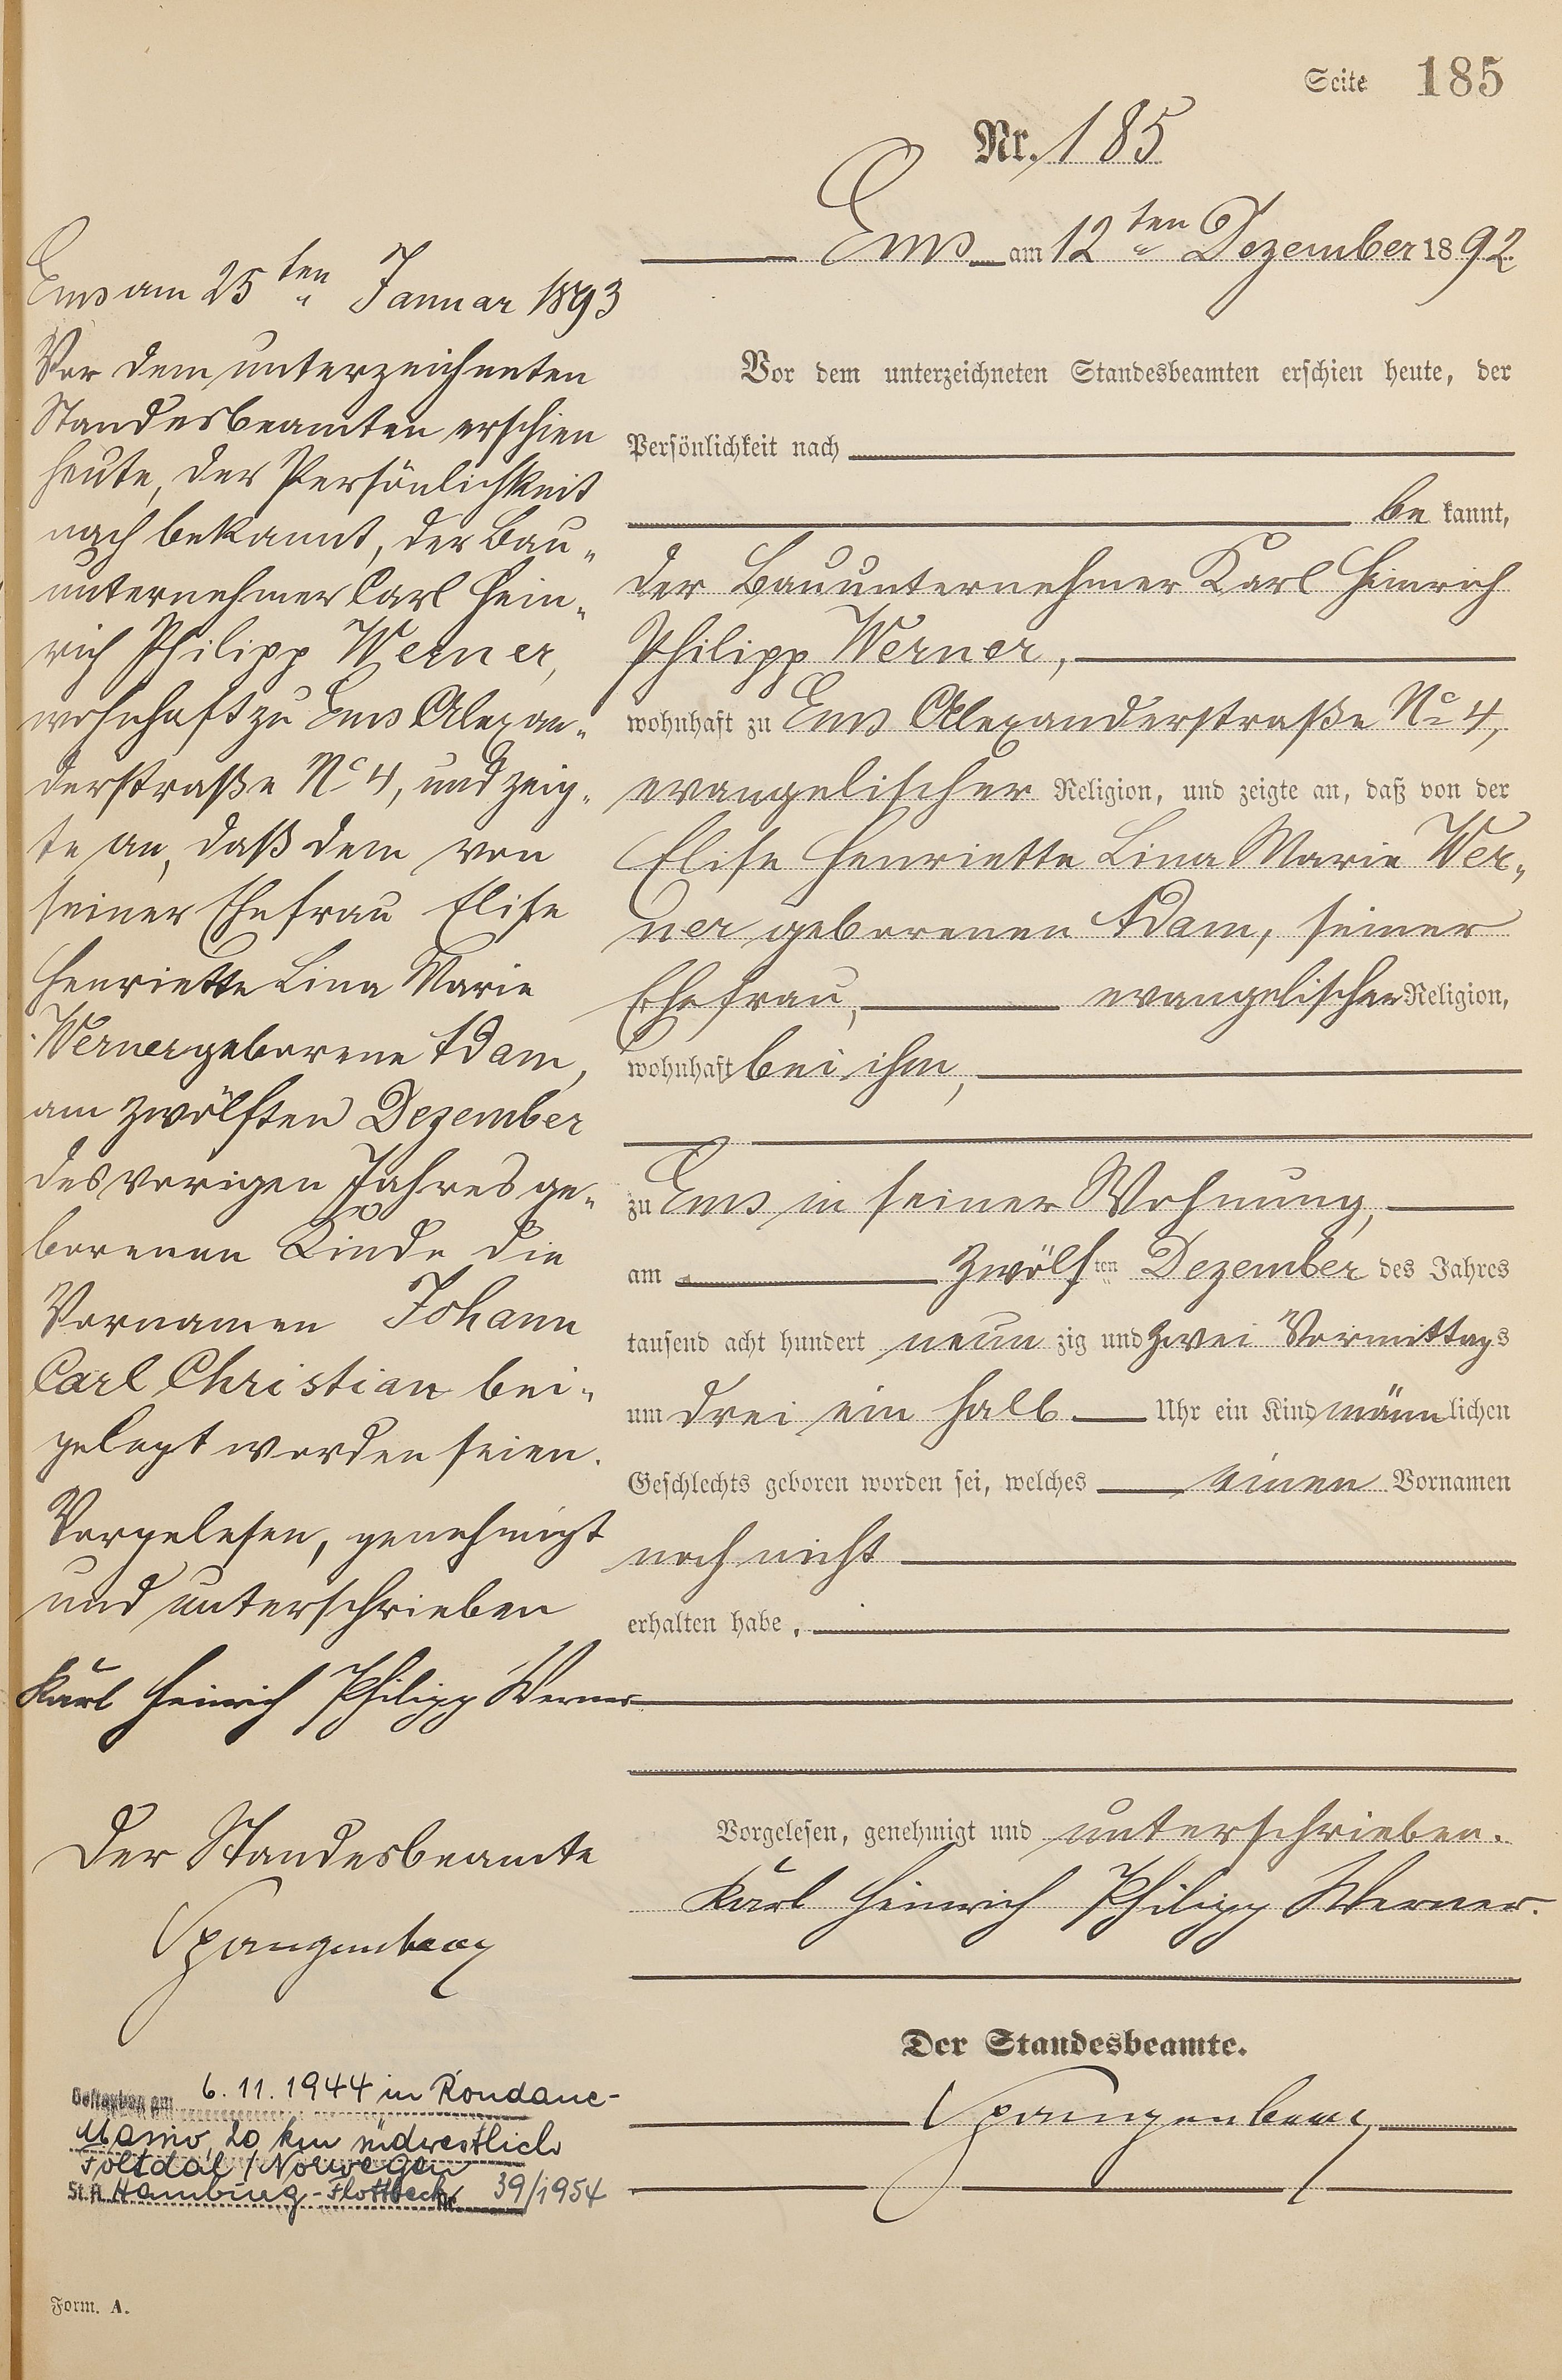 Seite 185
Nr. 185
Ems am 12ten Dezember 1892
Vor dem unterzeichneten Standesbeamten erschien heute, der
Persönlichkeit nach
be kannt,
der Bauunternehmer Karl Heinrich
Philipp Werner,
wohnhaft zu Ems Alexanderstraße No 4,
evangelischer Religion, und zeigte an, daß von der
Elise Henriette Lina Marie Wer-
ner geborenen Adam, seiner
Ehefrau, evangelischer Religion,
wohnhaft bei ihm,
zu Ems in seiner Wohnung,
am zwölften Dezember des Jahres
tausend acht hundert neun zig und zwei Vormittags
um drei ein halb Uhr ein Kind männlichen
Geschlechts geboren worden sei, welches einen Vornamen
noch nicht
erhalten habe.
Vorgelesen, genehmigt und unterschrieben.
Karl Heinrich Philipp Werner.
Der Standesbeamte.
Spangenberg
Ems am 25ten Januar 1893
Vor dem unterzeichneten
Standesbeamten erschien
heute, der Persönlichkeit
nach bekannt, der Bau-
unternehmer Carl Hein-
rich Philipp Werner,
wohnhaft zu Ems Alexan-
derstraße No 4, und zeig-
te an, daß dem von
seiner Ehefrau Elise
Henriette Lina Marie
Werner geborene Adam,
am zwölften Dezember
des vorigen Jahres ge-
borenen Kinde die
Vornamen Johann
Carl Christian bei-
gelegt worden seien.
Vorgelesen, genehmigt
und unterschrieben
Karl Heinrich Philipp Werner
Der Standesbeamte
Spangenberg
Gestorben am 6.11.1944 in Rondane-
20 km südwestlich
Foltdal / Norwegen
St.A. Hamburg-Flottbek Nr. 39/1954
Form. A.